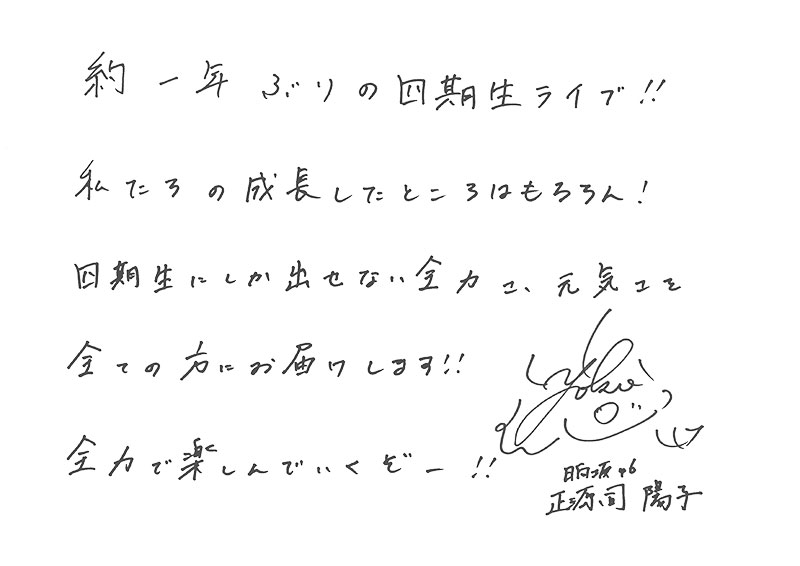 約一年ぶりの四期生ライブ!!
私たちの成長したところはもちろん!
四期生にしか出せない全力さ、元気さを
全ての方にお届けします!!
全力で楽しんでいくぞー!!
Yoko
日向坂46
正源司 陽子